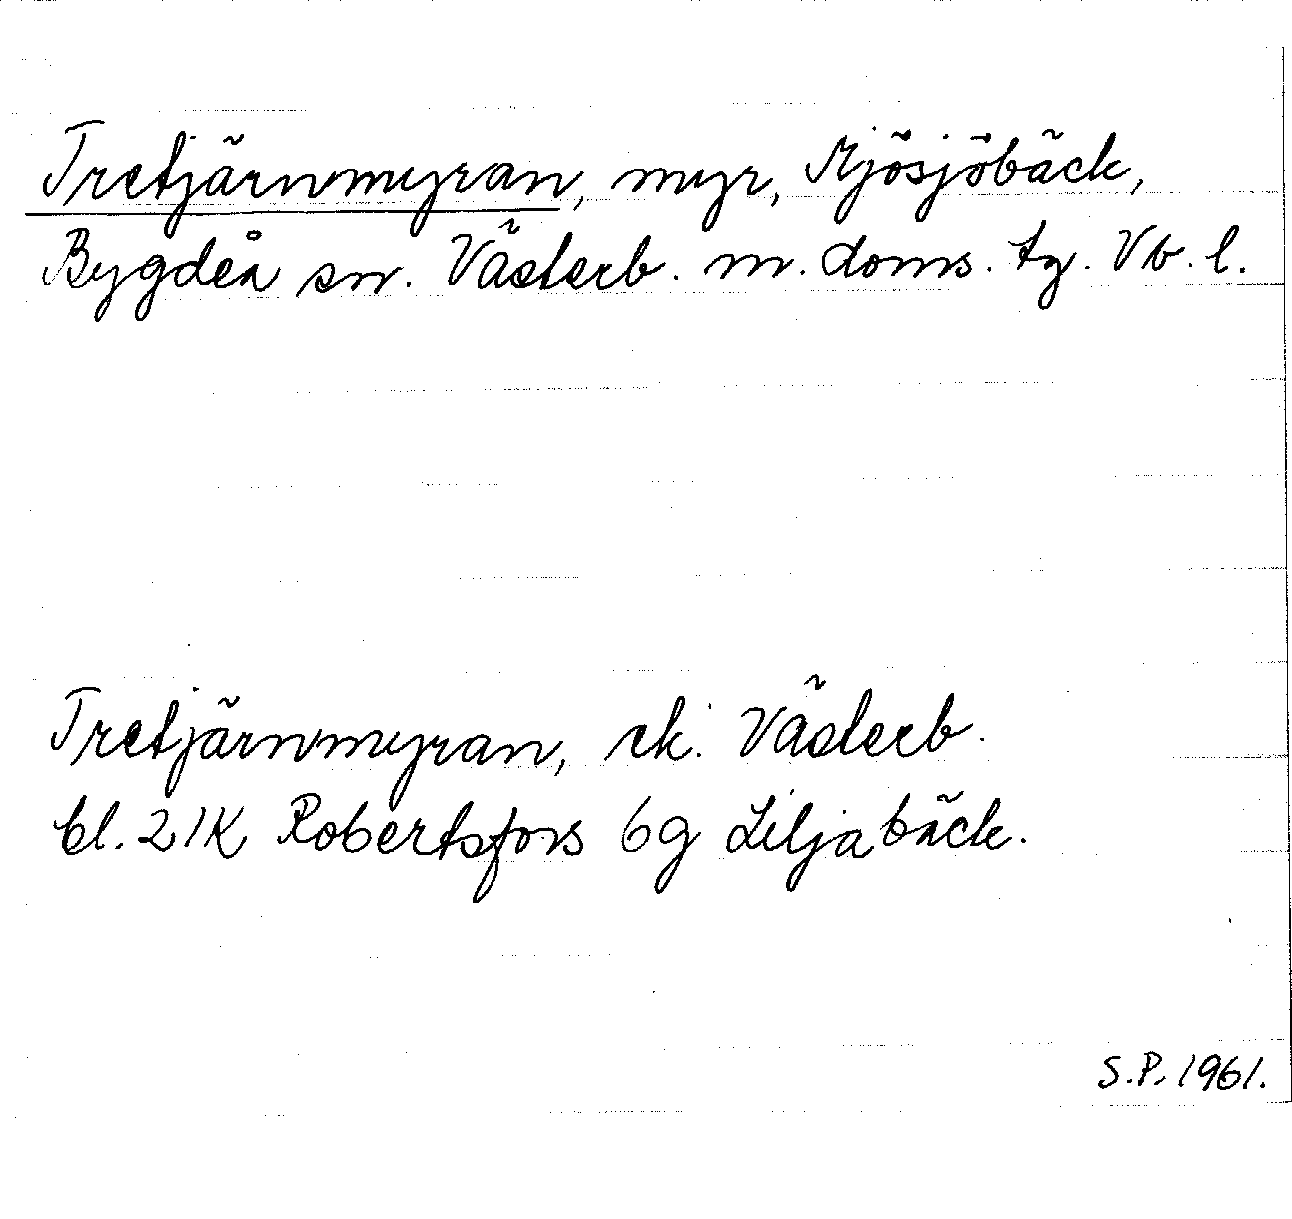 Tretjärnmyran, myr, Mjösjöbäck,
Bygdeå sn. Västerb. m. doms. tg. Vb. l.
Tretjärnmyran, ek. Västerb.
bl. 21K Robertsfors 6g Liljabäck.
S.P. 1961.